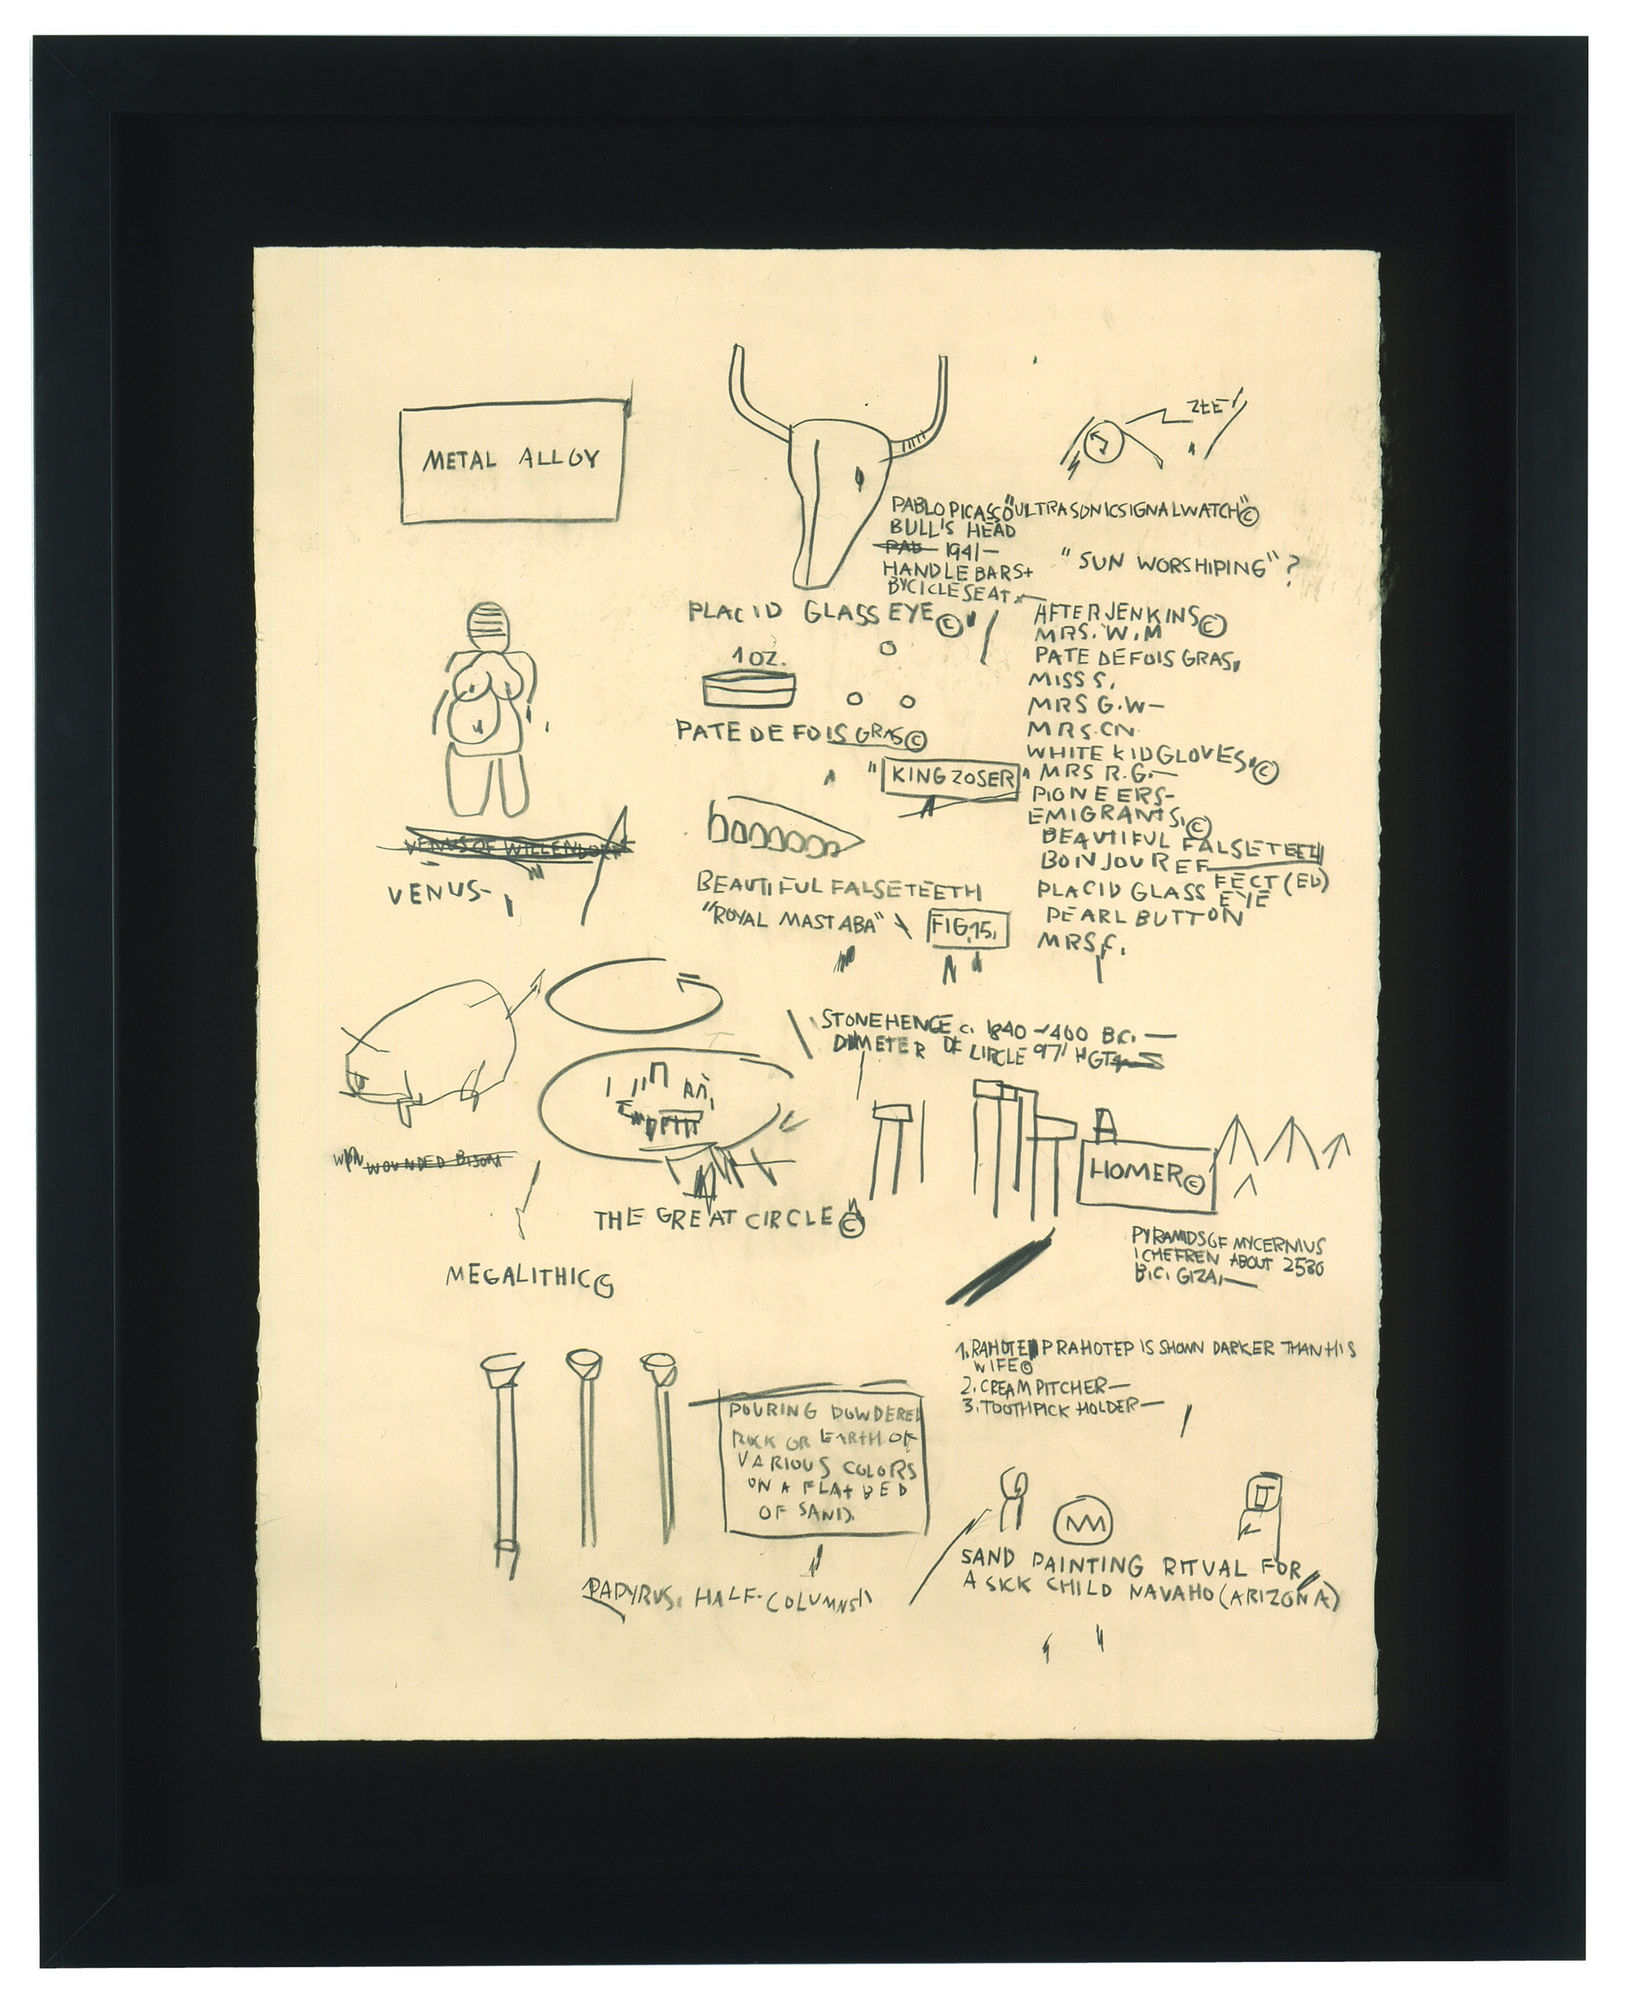 METAL ALLOY
ZEE
PABLO PICASSO "ULTRASONICSIGNALWATCH"©
BULL'S HEAD
PAB 1941—
HANDLEBARS+
BYCICLESEAT
"SUN WORSHIPING"?
PLACID GLASS EYE©
1 OZ.
PATE DE FOIS GRAS©
AFTER JENKINS©
MRS. W.M
PATE DE FOIS GRAS,
MISS S,
MRS G.W—
MRS. CN.
WHITE KID GLOVES,©
"KING ZOSER"
MRS R.G.—
PIONEERS-
EMIGRANTS,©
BEAUTIFUL FALSE TEETH
BONJOUR EF
FECT (ED)
PLACID GLASS EYE
PEARL BUTTON
MRS F.
VENUS OF WILLENDORF
VENUS-
BEAUTIFUL FALSE TEETH
"ROYAL MASTABA" \ FIG. 15,
STONEHENGE c. 1840-1400 B.C. —
DIAMETER OF CIRCLE 97' HGT
WOUNDED BISON
THE GREAT CIRCLE©
HOMER©
MEGALITHIC
PYRAMIDS OF MYCERNIUS
CHEFREN ABOUT 2530
B.C. GIZA,—
1. RAHOTEP RAHOTEP IS SHOWN DARKER THAN HIS
WIFE©
2. CREAM PITCHER—
3. TOOTHPICK HOLDER—
POURING POWDERED
ROCK OR EARTH OF
VARIOUS COLORS
ON A FLAT BED
OF SAND.
PAPYRUS. HALF-COLUMNS
SAND PAINTING RITUAL FOR
A SICK CHILD NAVAHO (ARIZONA)